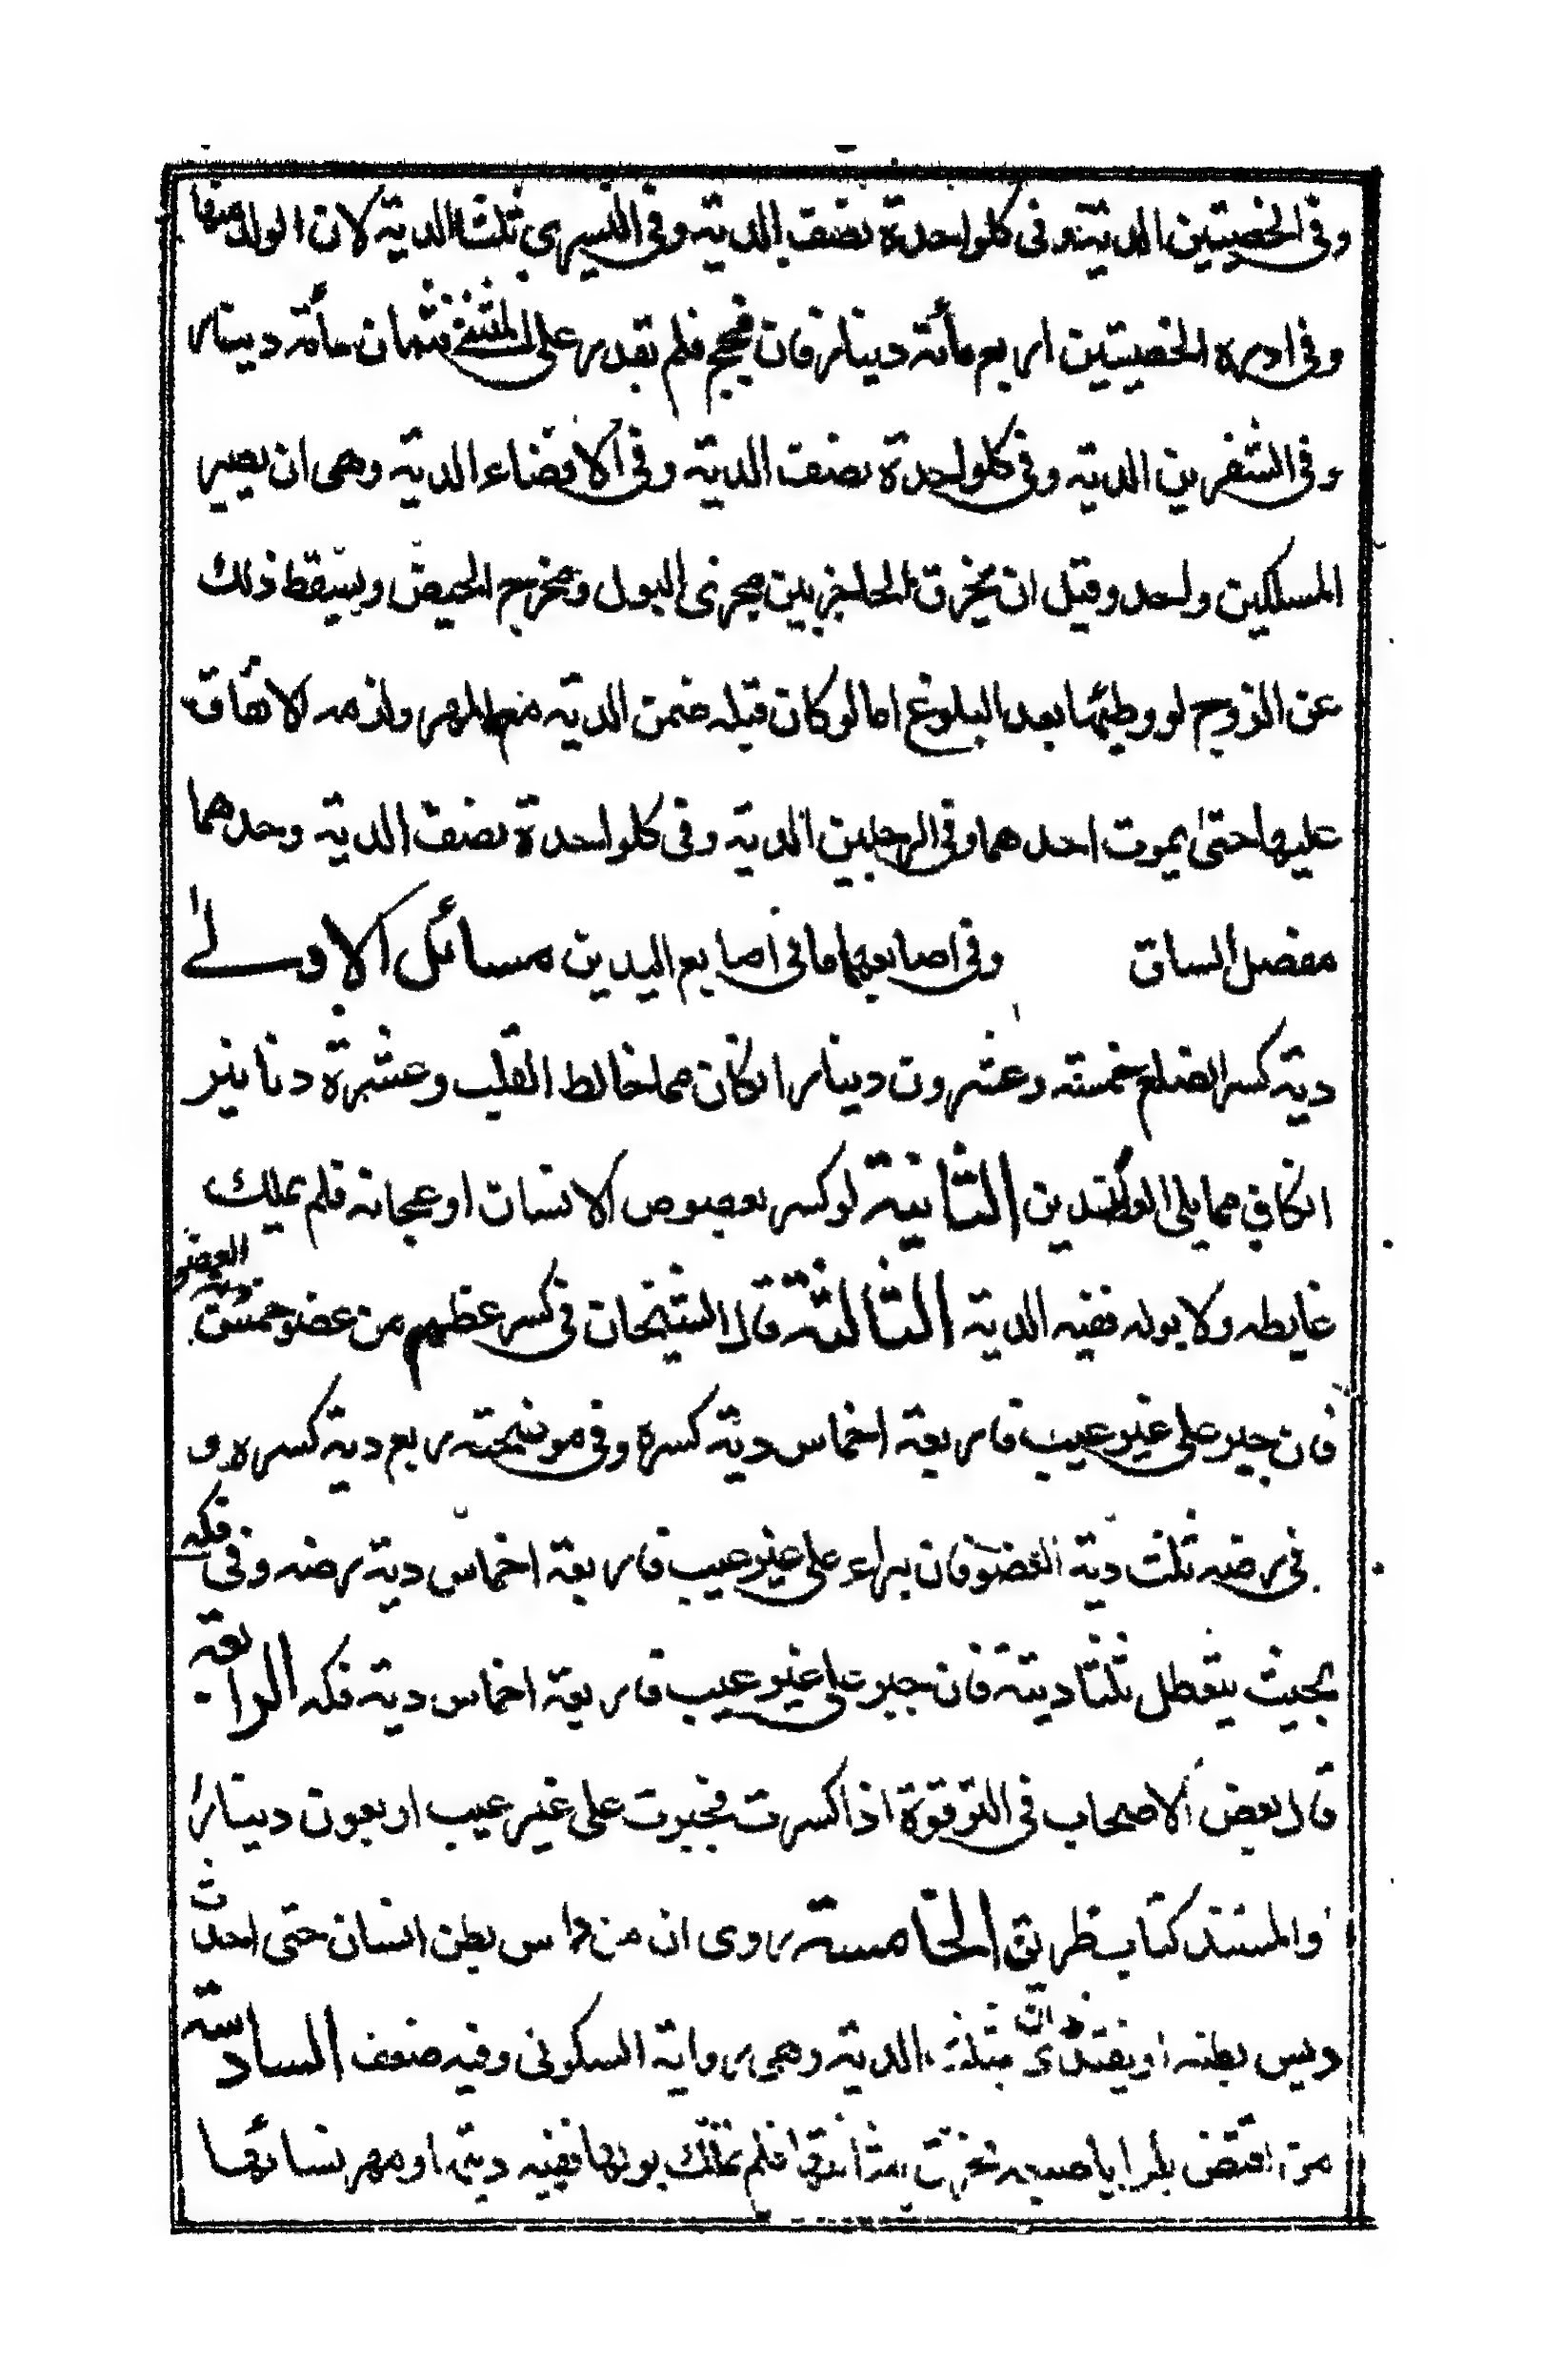 وفي الخصيتين الدية وفي كل واحدة نصف الدية وفي اليسرى ثلثا الدية لان الولد منها
وفي ادرة الخصيتين اربع مأته دينار فان فحج فلم يقدر على المشي فثمان مأته دينار
وفي الشفرين الدية وفي كل واحدة نصف الدية وفي الافضاء الدية وهي ان يصير
المسلكين واحد وقيل ان يخرق الحاجز بين مجرى البول ومخرج الحيض ويسقط ذلك
عن الزوج لو وطيها بعد البلوغ اما لو كان قبله ضمن الدية مع المهر ولزمه الانفاق
عليها حتى يموت احدهما وفي الرجلين الدية وفي كل واحدة نصف الدية وحدهما
مفصل الساق وفي اصابعهما ما في اصابع اليدين مسائل الاولى
دية كسر الضلع خمسة وعشرون دينارا انكان مما خالط القلب وعشرة دنانير
انكان مما يلي العضدين الثانية لو كسر بعصوص الانسان او عجانه فلم يملك
غايطه ولا بوله ففيه الدية الثالثة قال الشيخان في كسر عظم من عضو خمس دية العضو
فان جبر على غير عيب فاربعة اخماس دية كسره وفي موضحته ربع دية كسره و
في رضه ثلث دية العضو فان براء على غير عيب فاربعة اخماس دية رضه وفي فكه
بحيث يتعطل ثلثا ديته فان جبر على غير عيب فاربعة اخماس دية فكه الرابعة
قال بعض الاصحاب في الترقوة اذا كسرت فجبرت على غير عيب اربعون دينارا
والمستند كتاب ظريف الخامسة روى ان من داس بطن انسان حتى احدث
ديس بطنه او يفتدى ذلك بثلث الدية وهي رواية السكوني وفيه ضعف السادسة
من افتض بكرا باصبعه فخرق مثانتها فلم تملك بولها ففيه ديتها ومهر نسائها